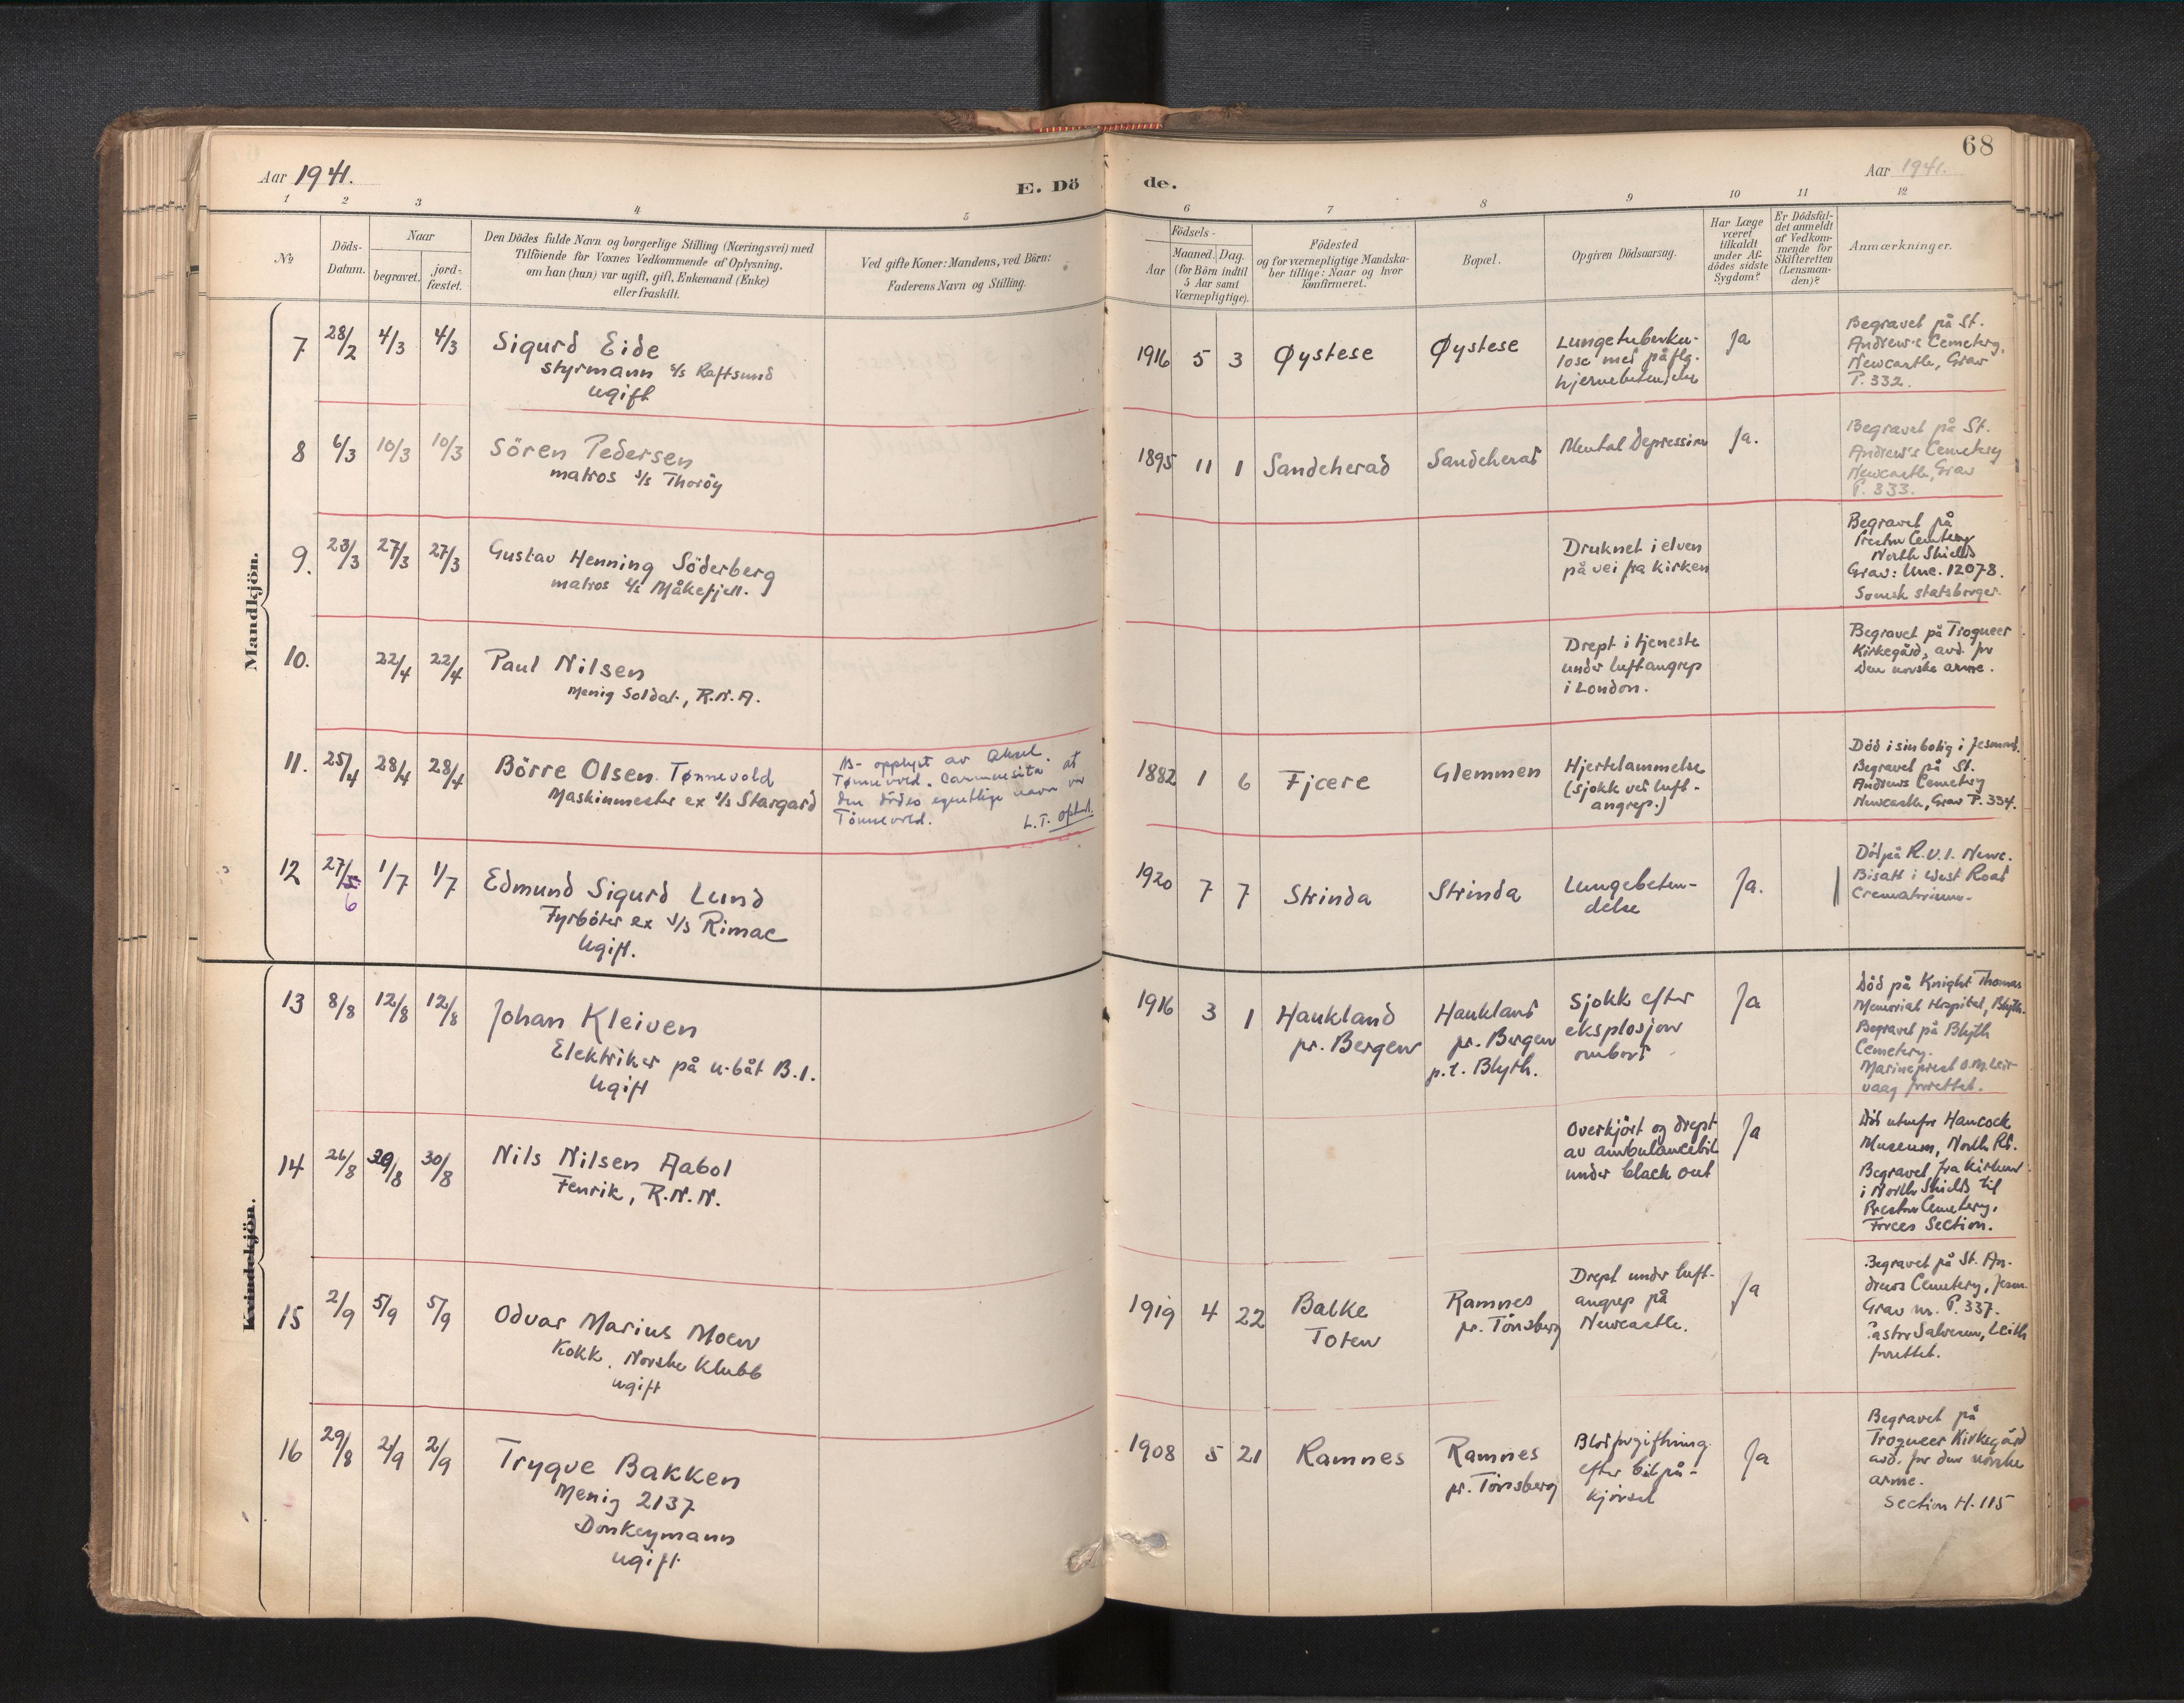 68
Aar 1941.
E. Dö
de.
Aar 1941.
1 2 3 4 5 6 7 8 9 10 11 12
№
Döds-
Datum.
Naar
begravet.
jord-
fæstet.
Den Dödes fulde Navn og borgerlige Stilling (Næringsvei) med
Tilföiende for Voxnes Vedkommende af Oplysning,
om han (hun) var ugift, gift, Enkemand (Enke)
eller fraskilt.
Ved gifte Koner: Mandens, ved Börn:
Faderens Navn og Stilling.
Födsels-
Aar
Maaned.
Dag.
(for Börn indtil
5 Aar samt
Værnepligtige).
Födested
og for værnepligtige Mandska-
ber tillige: Naar og hvor
konfirmeret.
Bopæl.
Opgiven Dödsaarsag.
Har Læge
været
tilkaldt
under Af-
dödes sidste
Sygdom?
Er Dödsfal-
det anmeldt
af Vedkom-
mende for
Skifteretten
(Lensman-
den)?
Anmærkninger.
Mandkjön.
7 28/2 4/3 4/3
Sigurd Eide
styrmann s/s Raftsund
ugift
1916 5 3 Øystese Øystese
Lungetuberku-
lose med påflg.
hjernebetendelse
Ja
Begravet på St.
Andrew's Cemetery,
Newcastle, Grav
P. 332.
8 6/3 10/3 10/3
Sören Pedersen
matros s/s Thoröy
1895 11 1 Sandeherad Sandeherad
Mental Depression
Ja.
Begravet på St.
Andrew's Cemetery
Newcastle, Grav
P. 333.
9. 23/3 27/3 27/3
Gustav Henning Söderberg
matros s/s Måkefjell.
Druknet i elven
på vei fra kirken
Begravet på
Preston Cemetery
North Shields
Grav: Unc. 12078.
Svensk statsborger.
10. 22/4 22/4
Paul Nilsen
Menig Soldat, R.N.A.
Drept i tjeneste
under luftangrep
i London.
Begravet på Troqueer
Kirkegård, avd. for
den norske arme.
11. 25/4 28/4 28/4
Börre Olsen Tønnevold
Maskinmester ex s/s Stargard
oppløst av Aksel
Tønnevold. at
den dødes egentlige navn var
Tönnevold.
L.T.
1882 1 6 Fjære Glemmen
Hjertelammelse
(sjokk ved luft-
angrep.)
Död i sin bolig i Jesmond.
Begravet på St.
Andrews Cemetery
Newcastle, Grav P. 334.
12 27/5 1/7 1/7
6
Edmund Sigurd Lund
Fyrböter ex s/s Rimac
Ugift.
1920 7 7 Strinda Strinda
Lungebeten-
delse
Ja.
Död på R.V.I. Newc.
Bisatt i West Road
Crematorium.
Kvindekjön.
13 8/8 12/8 12/8
Johan Kleiven
Elektriker på u-båt B.1.
Ugift
1916 3 1
Haukland
pr. Bergen
Haukland
pr. Bergen
p.t. Blyth.
Sjokk efter
eksplosjon
ombord
Ja
Död på Knight Thomas
Memorial Hospital, Blyth.
Begravet på Blyth
Cemetery.
Marineprest O.M. Leir-
vaag forrettet.
14 26/8 30/8 30/8
Nils Nilsen Aabol
Fenrik, R.N.N.
Overkjört og drept
av ambulancebil
under black out
Ja
Död utenfor Hancock
Museum, North Rd.
Begravet fra kirken
i North Shields til
Preston Cemetery,
Forces Section.
15 2/9 5/9 5/9
Odvar Marius Moen
Kokk, Norske Klubb
ugift
1919 4 22
Balke
Toten
Ramnes
pr. Tönsberg
Drept under luft-
angrep på
Newcastle.
Ja
Begravet på St. An-
drews Cemetery, Jesm.
Grav nr. P. 337.
Pastor Salvesen, Leith
forrettet.
16 29/8 2/9 2/9
Trygve Bakken
Menig 2137
Donkeymann
ugift
1908 5 21 Ramnes
Ramnes
pr. Tönsberg
Blodforgiftning
efter bilpå-
kjörsel
Ja
Begravet på
Troqueer Kirkegård
avd. for den norske
arme.
Section H. 115